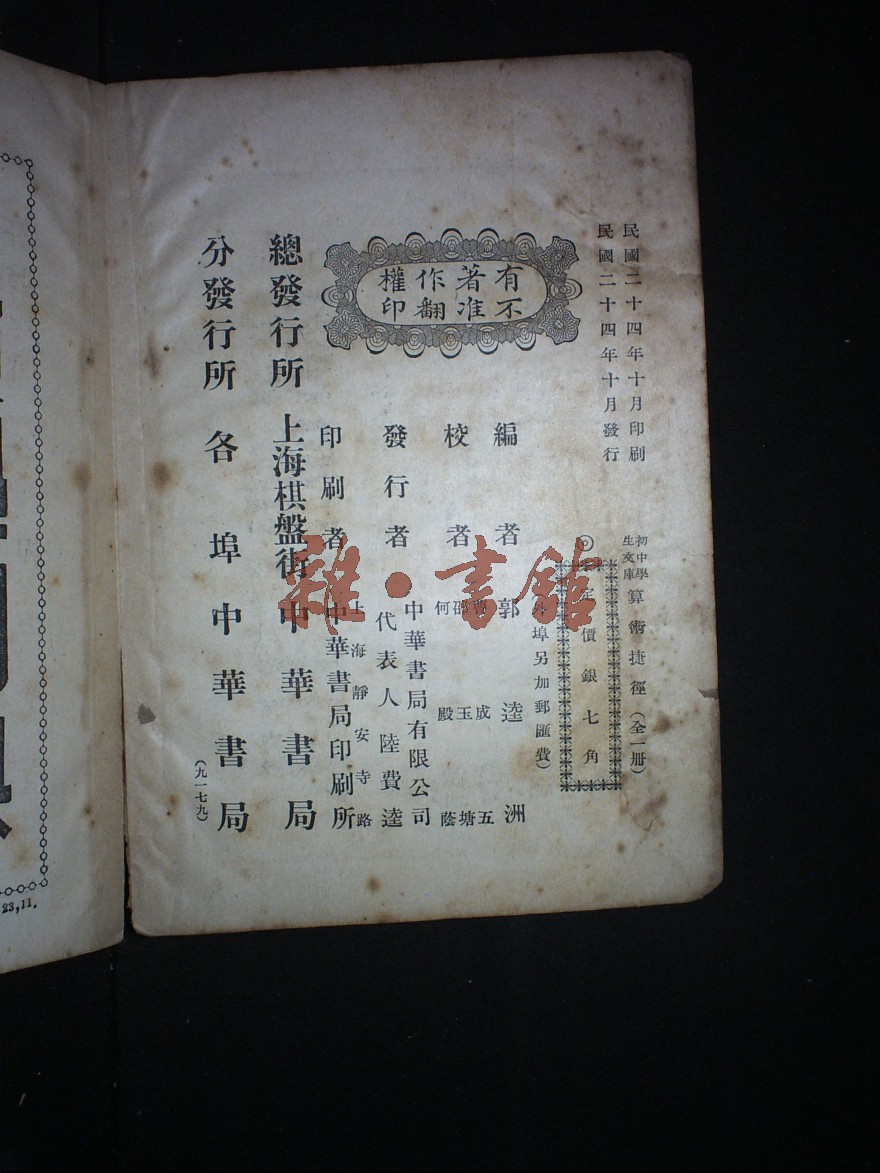 民國二十四年十月印刷
民國二十四年十月發行
初中學生文庫 算術捷徑（全一冊）
◎定價銀七角
埠另加郵匯費）
有著作權
不准翻印
編者 郭逵洲
校者 成五
邵玉塘
何殿蔭
發行者 中華書局有限公司
代表人陸費逵
印刷者 上海靜安寺路
中華書局印刷所
總發行所 上海棋盤街 中華書局
分發行所 各埠中華書局
（九一七九）
23,11.
雜·書館